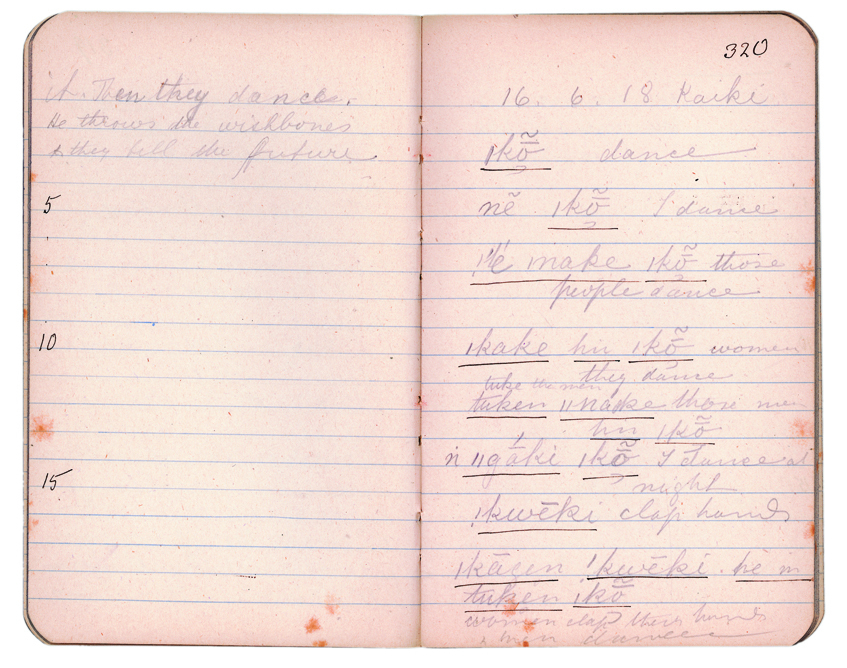 it. Then they dance.
He throws the wishbones
& they tell the future
5
10
15
320
16. 6. 18 Kaiki
ǀkȭ dance
nĕ ǀkȭ I dance
make ǀkȭ those
people dance
ǀkake hn ǀkȭ women
they dance
tuken ǁnake those men
hn ǀkȭ
ṅ ǁgāki ǀkȭ I dance at
night
ǃkwēki clap hands
ǀkāçen ǃkwēki. hé
tuken ǀkȭ
women clap their hands
& men dance